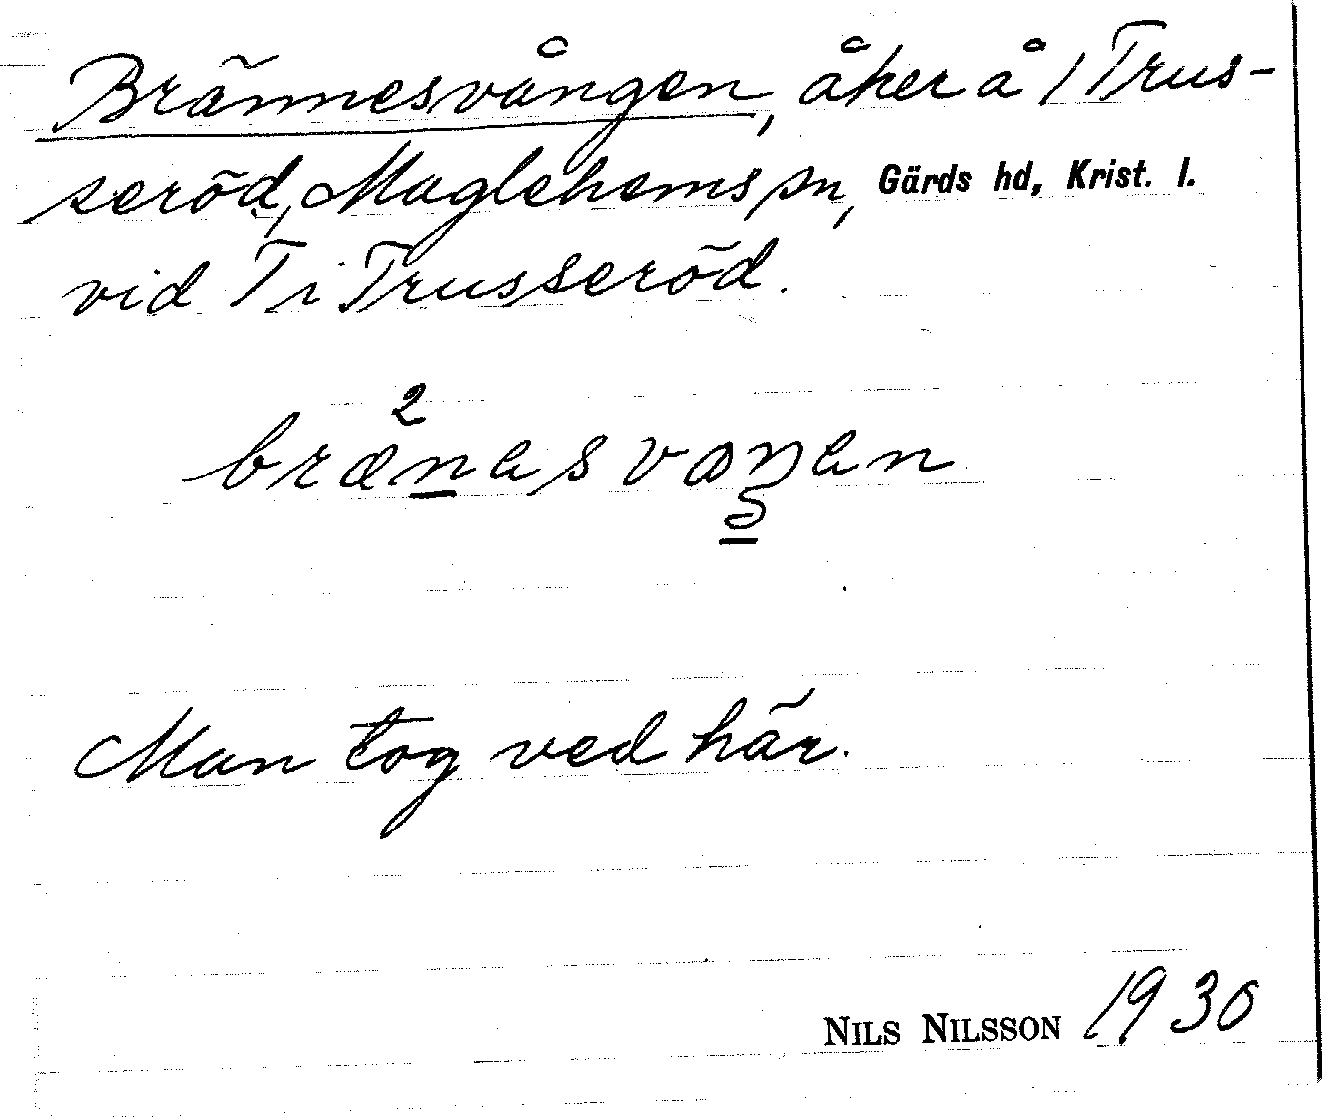 Brännesvången, åker å 1 Trus-
seröd, Maglehems sn, Gärds hd, Krist. l.
vid T i Trusseröd.
2
brænesvaŋen
Man tog ved här.
NILS NILSSON 1930